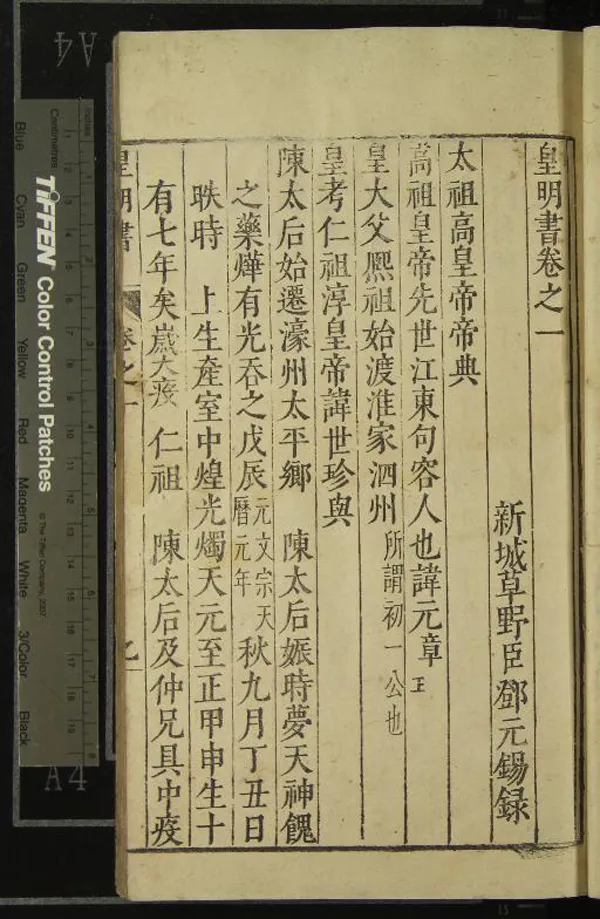 皇明書卷之一
新城草野臣鄧元錫錄
太祖高皇帝帝典
高祖皇帝先世江東句容人也諱元章
皇大父熈祖始渡淮家泗州所謂初一公也
皇考仁祖淳皇帝諱世珍與
陳太后始遷濠州太平鄉 陳太后娠時夢天神餽
之藥燁有光吞之戊辰元文宗天曆元年秋九月丁丑日
昳時 上生產室中煌光燭天元至正甲申生十
有七年矣嵗大疫 仁祖 陳太后及仲兄具中疫
皇明書 卷之一
A4
Inches
Centimetres
TIFFEN Color Control Patches
© The Tiffen Company, 2007
Blue Cyan Green Yellow Red Magenta White 3/Color Black
A4